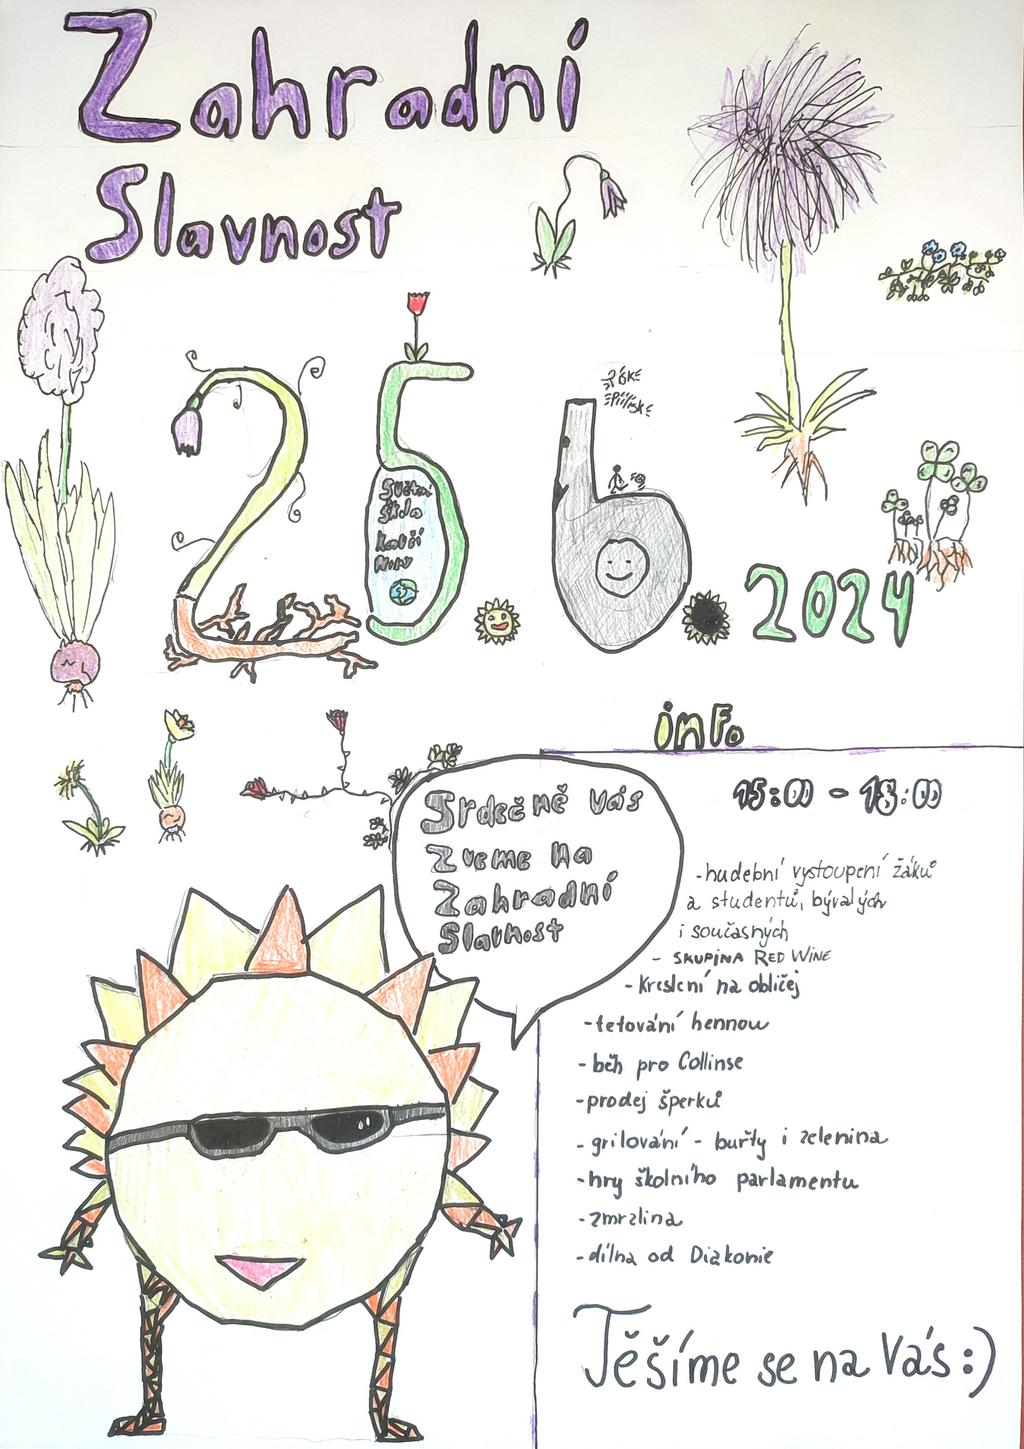 Zahradní
Slavnost
25. 6. 2024
Škola
info
15:00 - 18:00
Srdečně Vás
zveme na
Zahradní
Slavnost
-hudební vystoupení žáků
a studentů, bývalých
i současných
- SKUPINA RED WINE
- Kreslení na obličej
-tetování hennou
- běh pro Collinse
-prodej šperků
-grilování - buřty i zelenina
-hry školního parlamentu
-zmrzlina
-dílna od Diakonie
Těšíme se na Vás :)